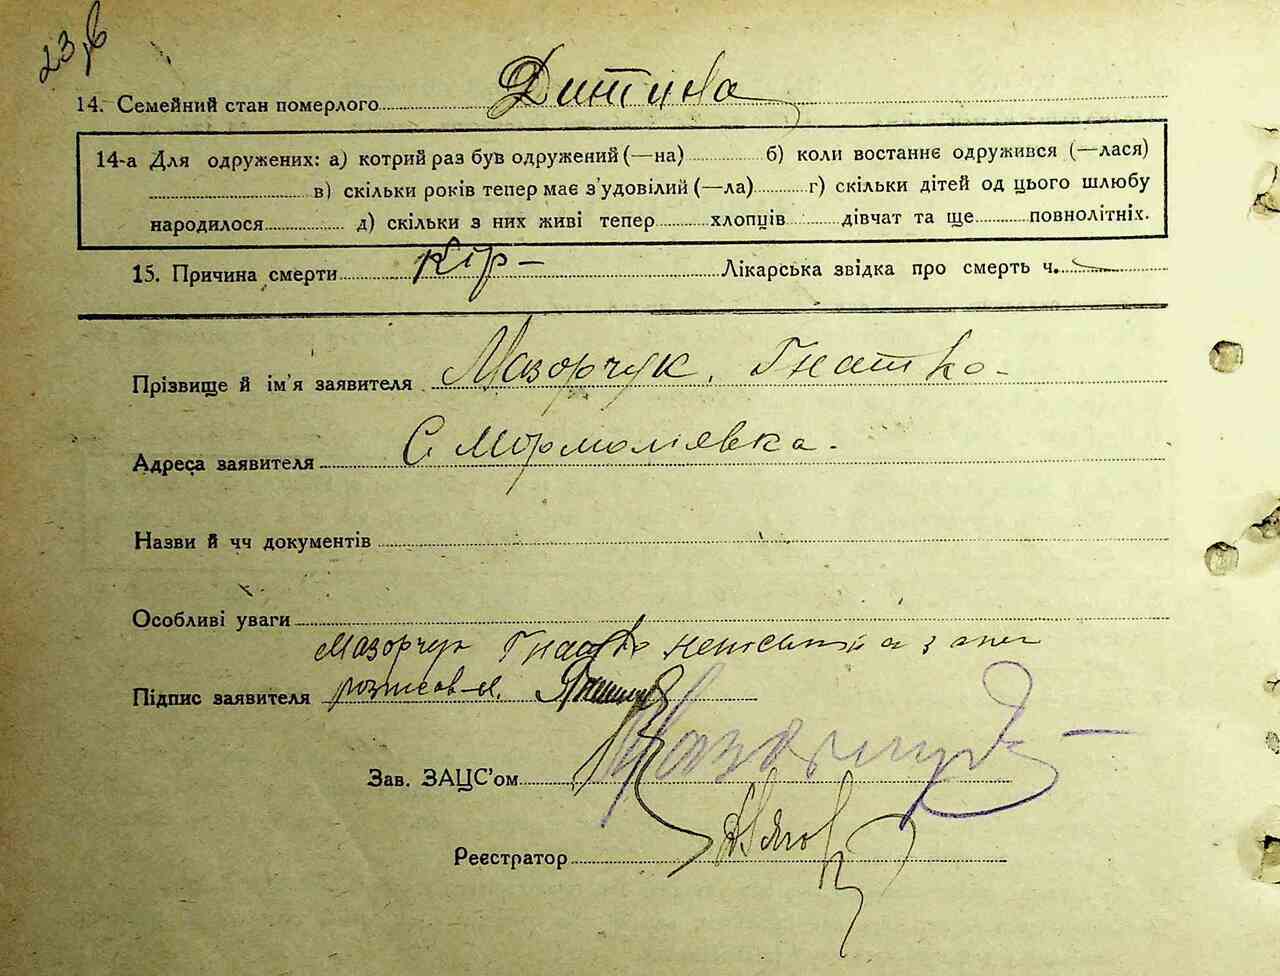 23
14. Семейний стан померлого Дитина
14-а Для одружених: а) котрий раз був одружений (—на) б) коли востаннє одружився (—лася)
в) скільки років тепер має з'удовілий (—ла) г) скільки дітей од цього шлюбу
народилося д) скільки з них живі тепер хлопців дівчат та ще повнолітніх.
15. Причина смерти кір – Лікарська звідка про смерть ч.
Прізвище й ім'я заявителя Мазорчук. Гнатко -
Адреса заявителя С. Мормоліявка.
Назви й чч документів
Особливі уваги
Мазорчук Гнатко
Підпис заявителя розписов-я.
Зав. ЗАЦС'ом
Реєстратор